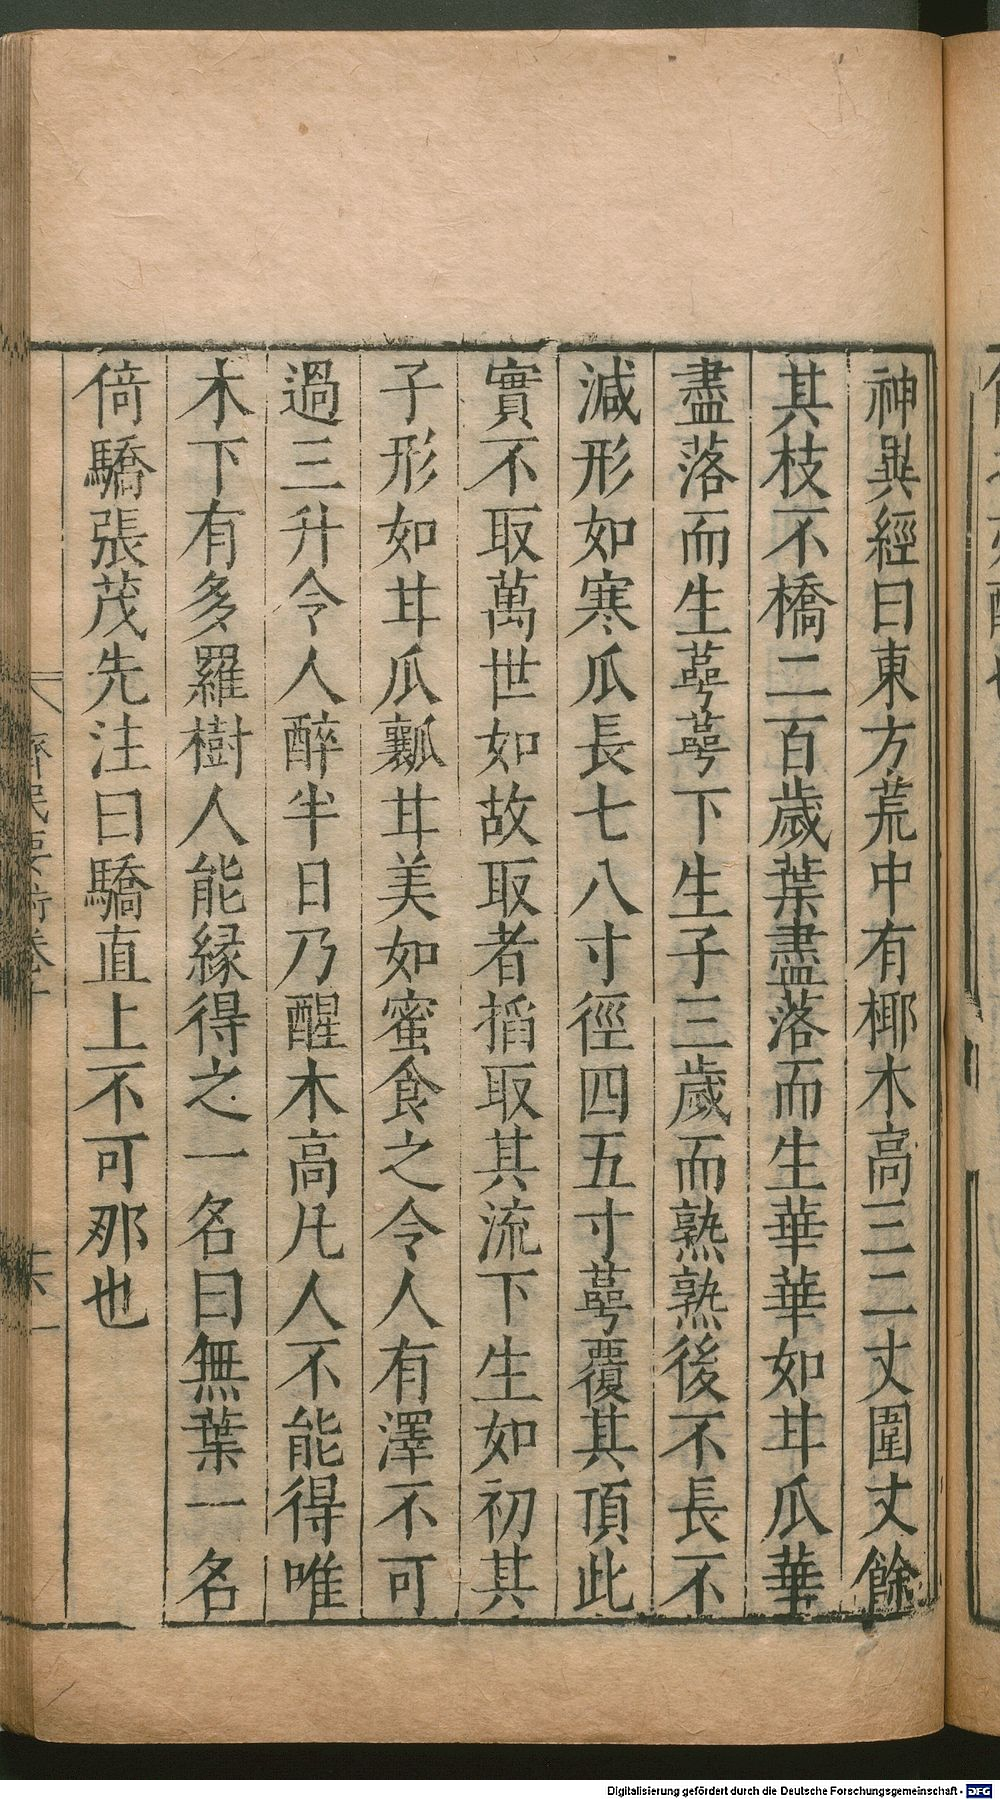 神異經曰東方荒中有椰木高三二丈圍丈餘
其枝不橋二百歲葉盡落而生華華如甘瓜華
盡落而生萼萼下生子三歲而熟熟後不長不
減形如寒瓜長七八寸徑四五寸萼覆其頂此
實不取萬世如故取者掐取其流下生如初其
子形如甘瓜瓤甘美如蜜食之令人有澤不可
過三升令人醉半日乃醒木高凡人不能得唯
木下有多羅樹人能緣得之一名曰無葉一名
倚驕張茂先注曰驕直上不可那也
齊民要術卷十
Digitalisierung gefördert durch die Deutsche Forschungsgemeinschaft - DFG